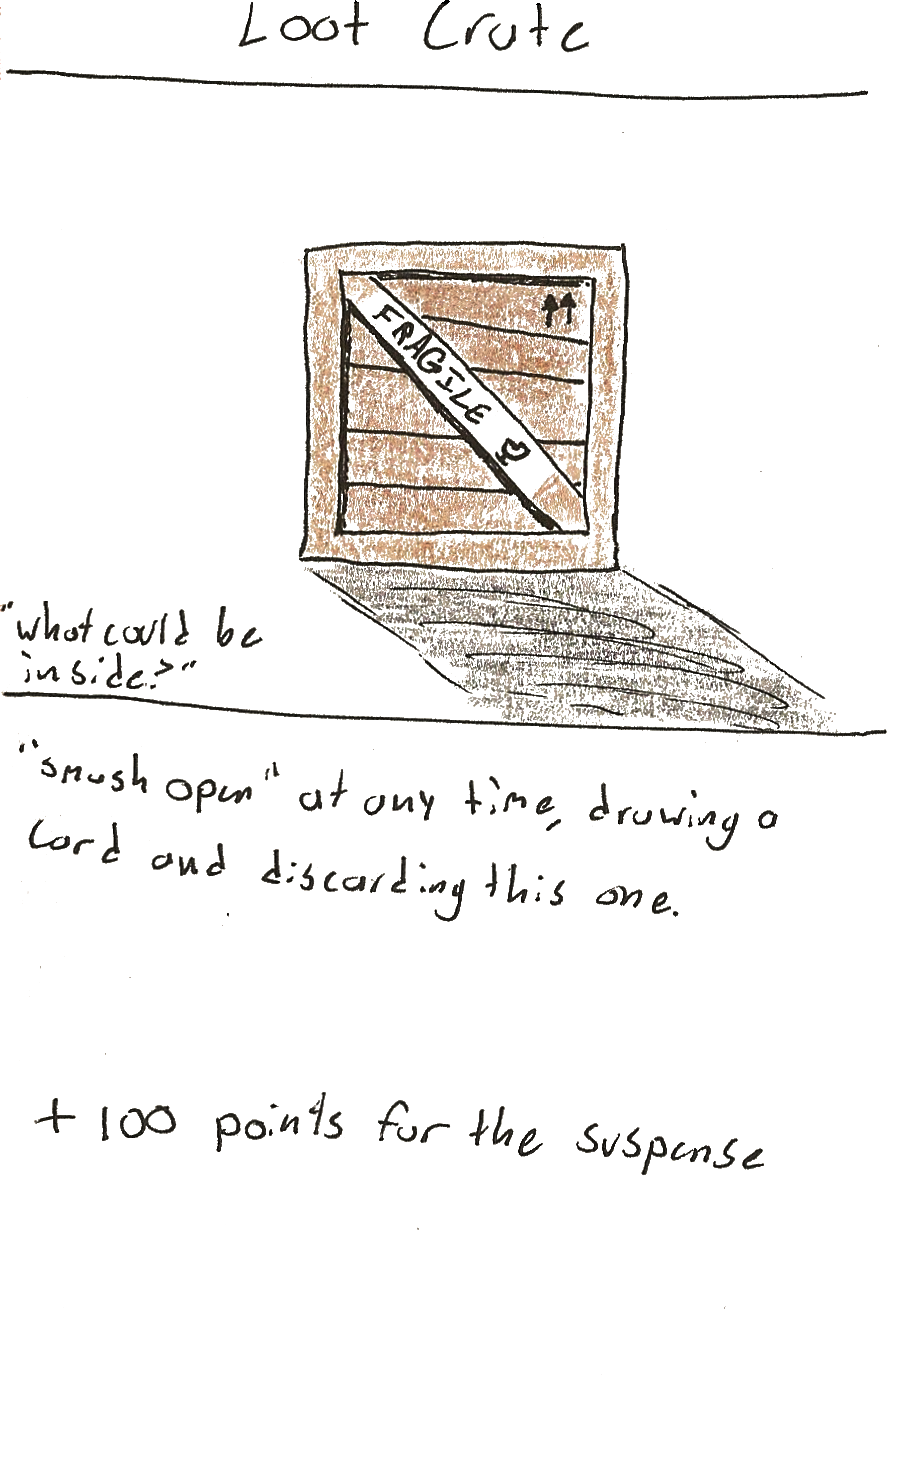 Loot Crate
FRAGILE
"what could be
inside?"
"smash open" at any time, drawing a
card and discarding this one.
+100 points for the suspense